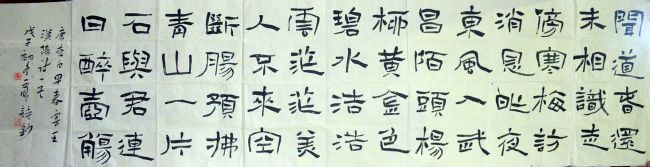 聞道春還
未相識走
傍寒梅訪
消息昨夜
東風入武
昌陌頭楊
柳黄金色
碧水浩浩
雲茫茫美
人不來空
斷腸預拂
青山一片
石與君連
日醉壺觴
唐李白早春寄王
漢陽诗一首
戊子初冬